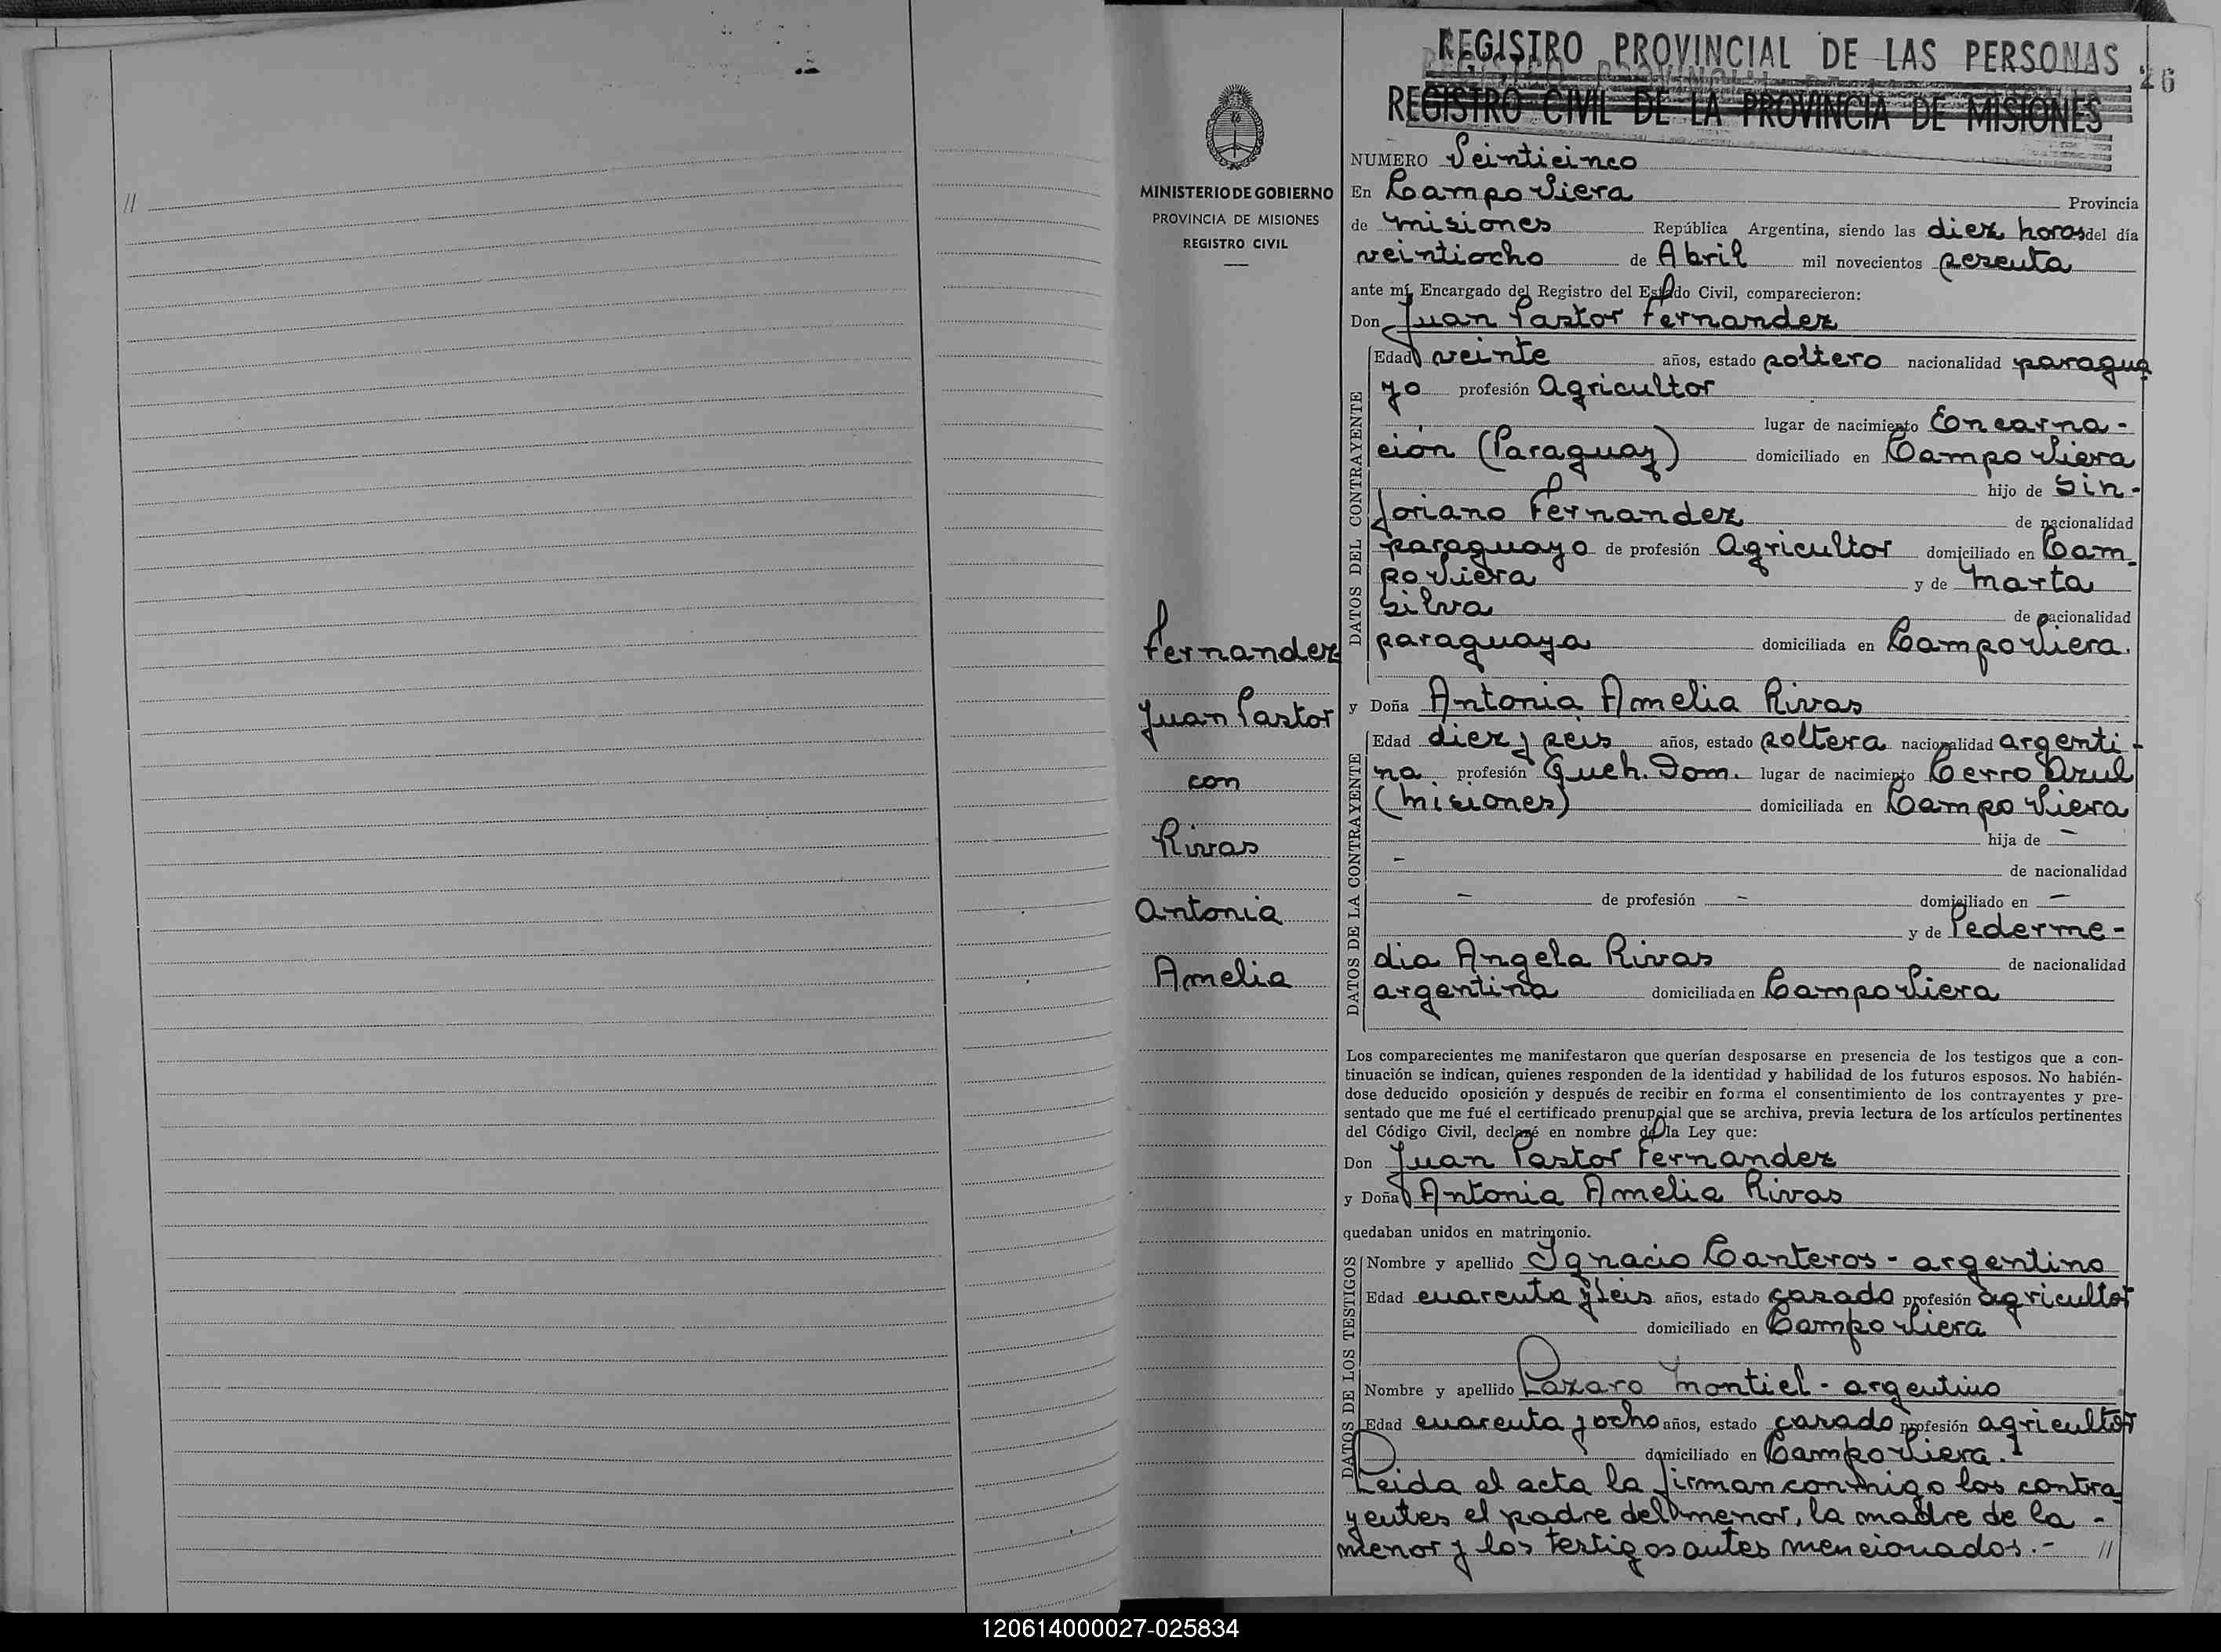 //
MINISTERIO DE GOBIERNO
PROVINCIA DE MISIONES
REGISTRO CIVIL
Fernandez
Juan Pastor
con
Rivas
Antonia
Amelia
REGISTRO PROVINCIAL DE LAS PERSONAS
26
REGISTRO CIVIL DE LA PROVINCIA DE MISIONES
NUMERO Veinticinco
En Campo Viera Provincia
de Misiones República Argentina, siendo las diez horas del día
veintiocho de Abril mil novecientos sesenta
ante mí, Encargado del Registro del Estado Civil, comparecieron:
Don Juan Pastor Fernandez
DATOS DEL CONTRAYENTE
Edad veinte años, estado soltero nacionalidad paragua
yo profesión Agricultor
lugar de nacimiento Encarna-
ción (Paraguay) domiciliado en Campo Viera
hijo de Sin-
foriano Fernandez de nacionalidad
paraguayo de profesión Agricultor domiciliado en Cam
po Viera y de Marta
Silva de nacionalidad
paraguaya domiciliada en Campo Viera.
y Doña Antonia Amelia Rivas
DATOS DE LA CONTRAYENTE
Edad diez y seis años, estado soltera nacionalidad argenti-
na profesión Queh. Dom. lugar de nacimiento Cerro Azul
(Misiones) domiciliada en Campo Viera
hija de -
- de nacionalidad
- de profesión - domiciliado en -
y de Pederme-
dia Angela Rivas de nacionalidad
argentina domiciliada en Campo Viera
Los comparecientes me manifestaron que querían desposarse en presencia de los testigos que a con-
tinuación se indican, quienes responden de la identidad y habilidad de los futuros esposos. No habién-
dose deducido oposición y después de recibir en forma el consentimiento de los contrayentes y pre-
sentado que me fué el certificado prenupcial que se archiva, previa lectura de los artículos pertinentes
del Código Civil, declaré en nombre de la Ley que:
Don Juan Pastor Fernandez
y Doña Antonia Amelia Rivas
quedaban unidos en matrimonio.
DATOS DE LOS TESTIGOS
Nombre y apellido Ignacio Canteros - argentino
Edad cuarenta y seis años, estado casado profesión agricultor
domiciliado en Campo Viera
Nombre y apellido Lázaro Montiel - argentino
Edad cuarenta y ocho años, estado casado profesión agricultor
domiciliado en Campo Viera.
Leida el acta la firman conmigo los contra
yentes el padre del menor, la madre de la -
menor y los testigos antes mencionados.- //
120614000027-025834